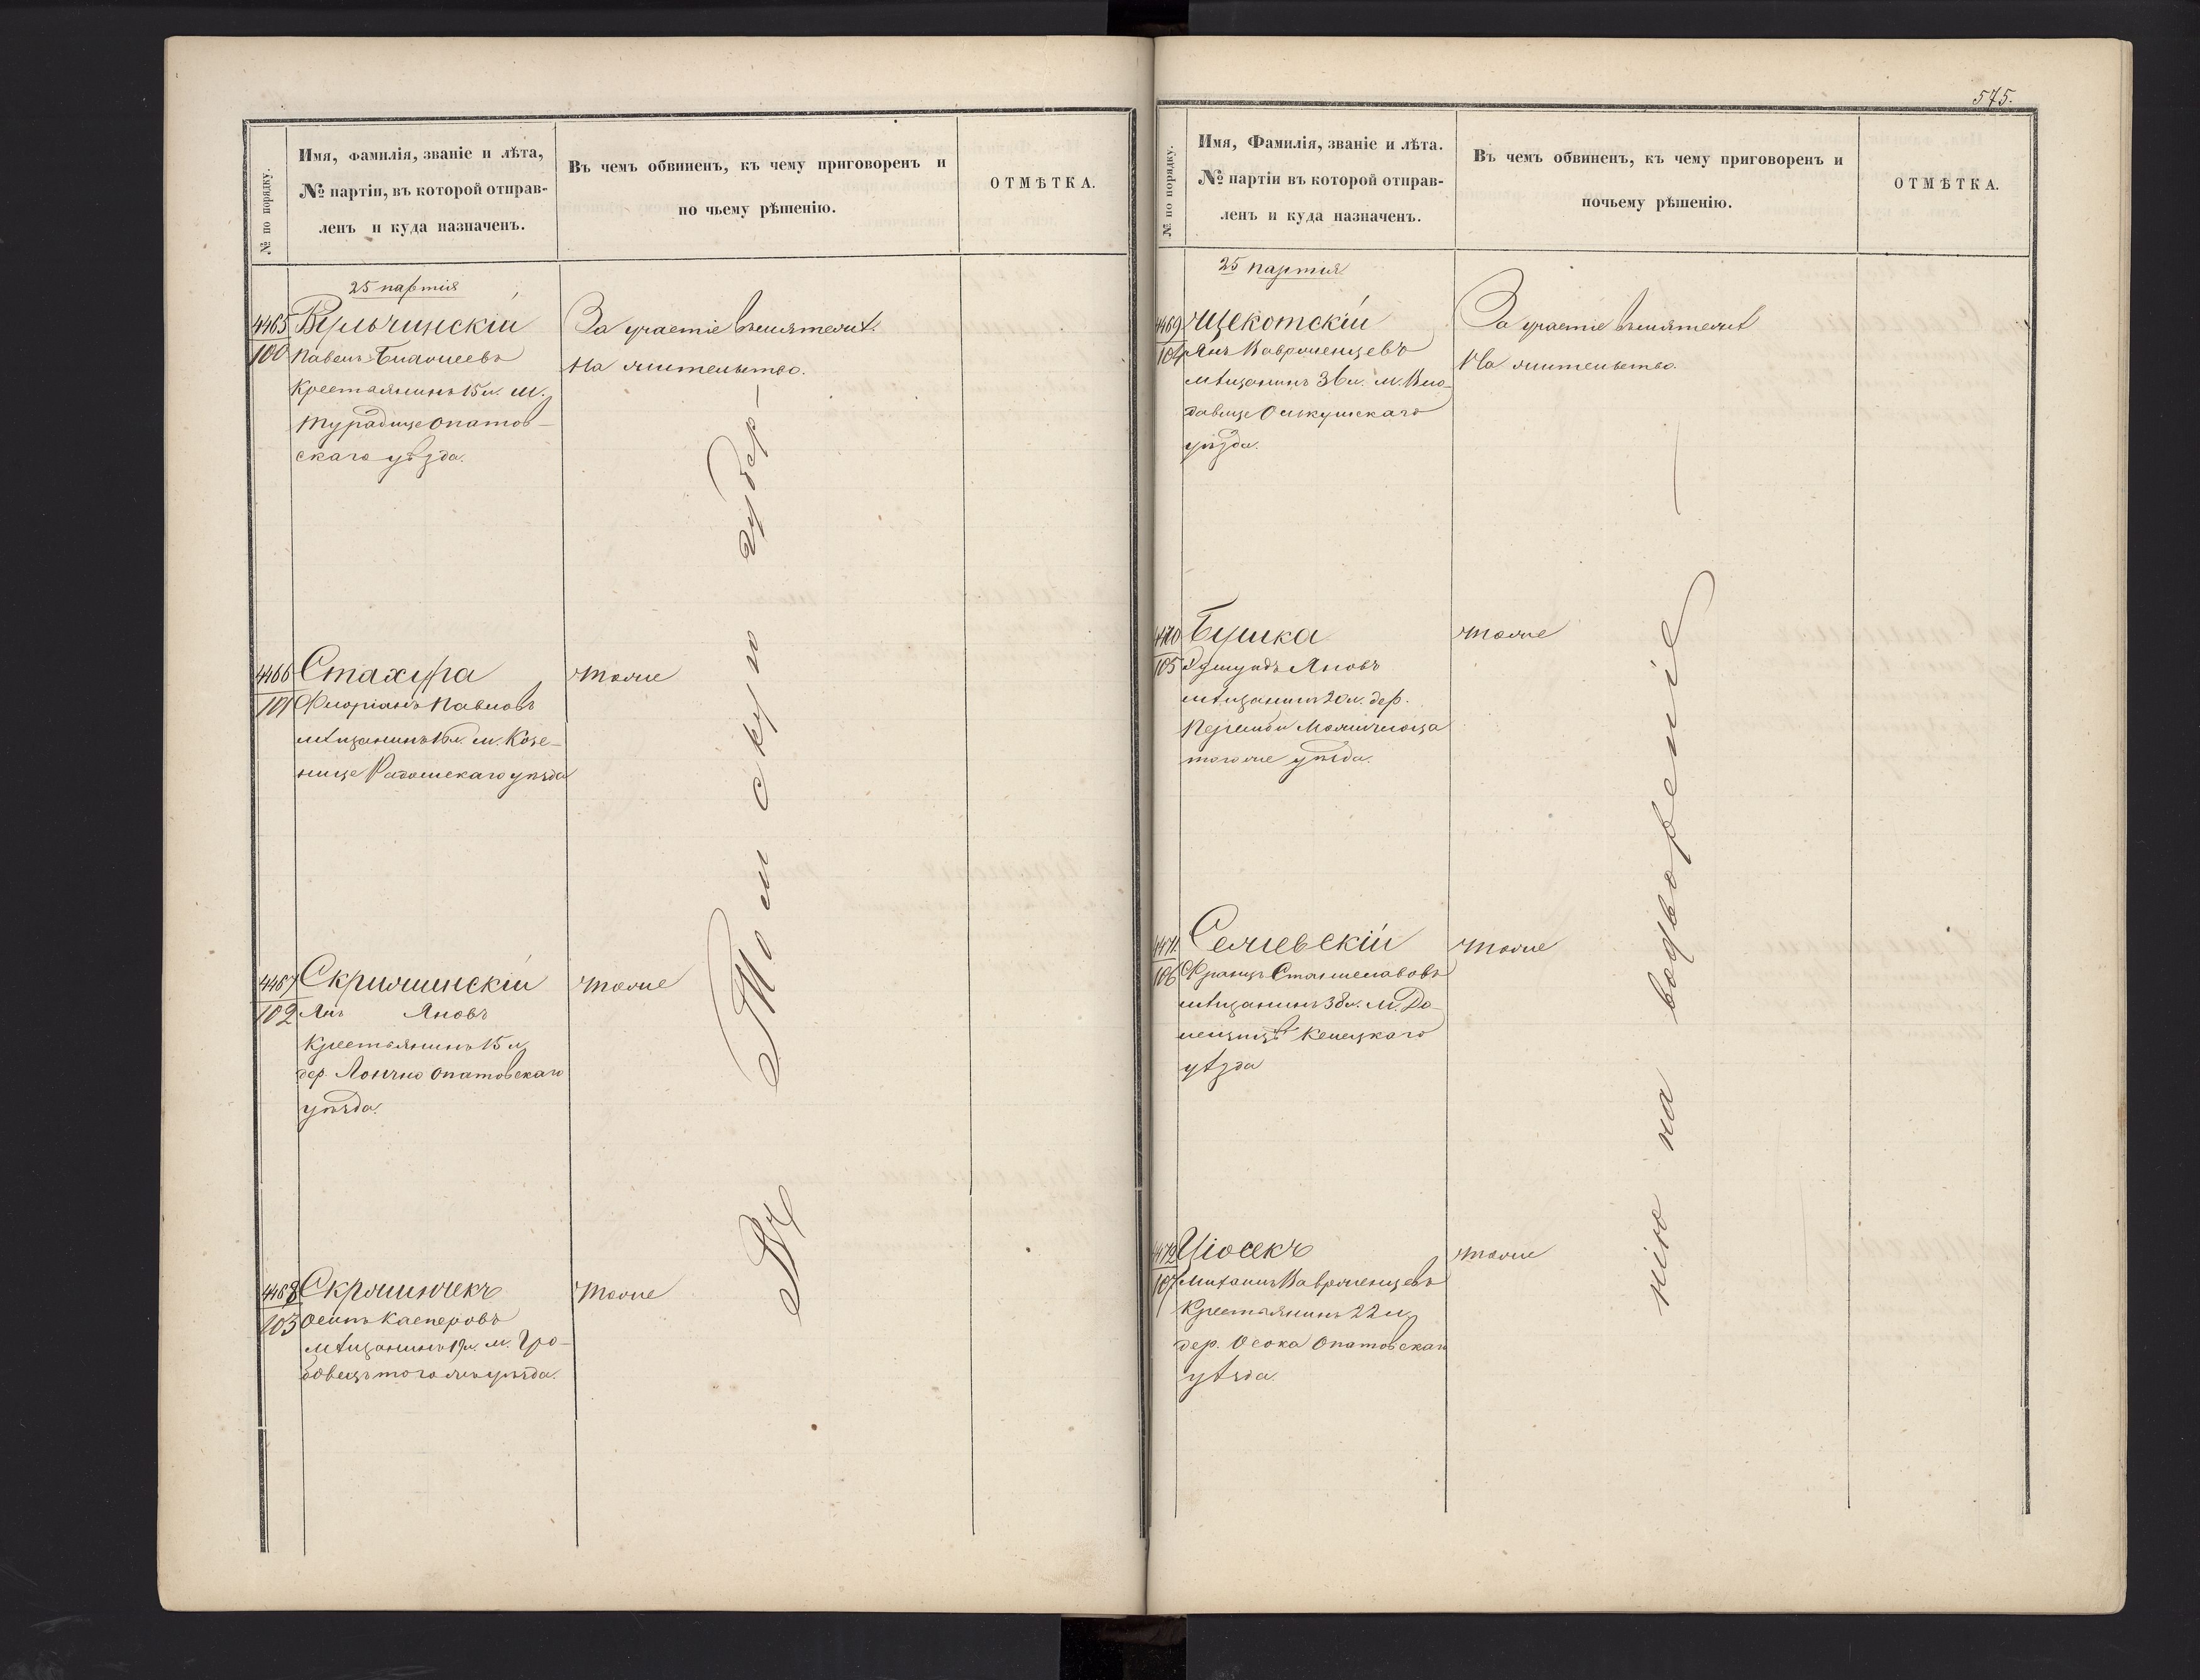 575.
№ по порядку.
Имя, фамилія, званіе и лѣта,
№ партіи, въ которой отправ-
ленъ и куда назначенъ.
Въ чемъ обвиненъ, къ чему приговоренъ и
по чьему рѣшенію.
ОТМѢТКА.
25 партія
4465
100
Вульчинскій
Павелъ
Крестьянинъ 15 л. м.
Опатов-
скаго уѣзда.
За участіе въ мятежѣ.
На жительство.
4466
101
Стахура
Флоріанъ Павловъ
мѣщанинъ 16 л. м. Козе-
нице Радомскаго уѣзда
тоже
4467
102
Скржишинскій
Янъ Яновъ
Крестьянинъ 15 л.
дер. Опатовскаго
уѣзда.
тоже
4468
103
Осипъ Касперовъ
мѣщанинъ 19 л. м. Гро-
бовецъ того же уѣзда.
тоже
Въ Томскую губер-
№ по порядку.
Имя, Фамилія, званіе и лѣта.
№ партіи въ которой отправ-
ленъ и куда назначенъ.
Въ чемъ обвиненъ, къ чему приговоренъ и
почьему рѣшенію.
ОТМѢТКА.
25 партія
4469
104
Щекотскій
Янъ Ваврженцевъ
мѣщанинъ 36 л. м. Вло-
давице Олькушскаго
уѣзда.
За участіе въ мятежѣ
На жительство.
4470
105
Бушка
Эдмундъ Яновъ
мѣщанинъ 20 л. дер.
того же уѣзда.
тоже
4471.
106
Францъ Станиславовъ
мѣщанинъ 38 л. м. Да-
лешицъ Келецкаго
уѣзда
тоже
4472
107
Ціосекъ
Михаилъ Ваврженцевъ
Крестьянинъ 22 л.
дер. Осока Опатовскаго
уѣзда.
тоже
нію на водвореніе